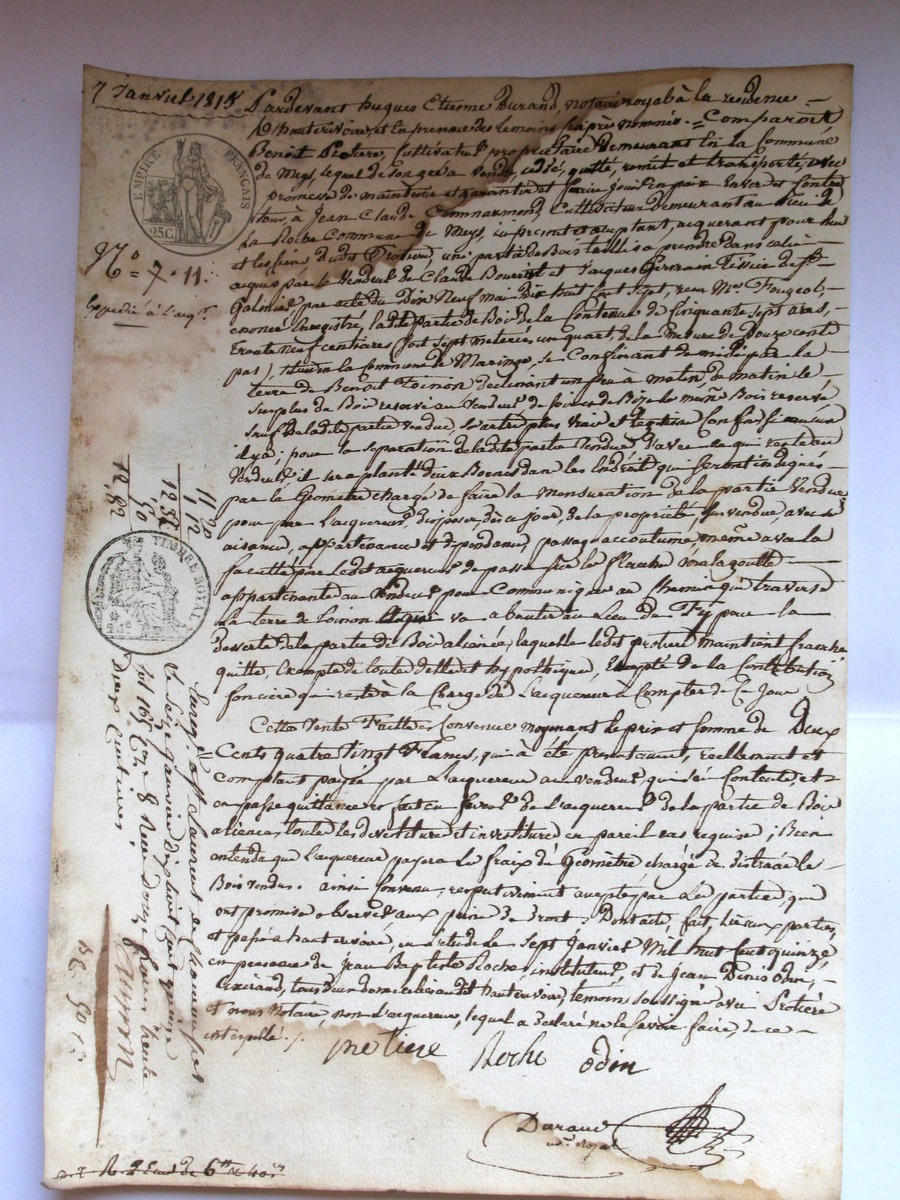 7 Janvier 1815
Pardevant hugues Etienne Durand, notaire royal à la residence
d'hauterivoire, et En presence des temoins ci après nommés. = Comparoit
Benoit Protiere, Cultivateur proprietaire demeurant En la Commune
de Meys, lequel de son gré a Vendu, cédé, quitté, remit et transporté, avec
promesse de maintenir et garantir et faire Jouir En paix Envers et Contre
tous, à Jean Claude Commarmond, Cultivateur demeurant au lieu de
La Roche Commune de Meys, ici présent et acceptant, acquerant pour lui
et les siens dudit Protiere, une partie de Bois taillis a prendre dans celui
acquis par le Vendeur de Claude Bourist et Jacques Germain Tissier de St
Galmier par acte du Dix Neuf mai Dix huit cent sept, reçu Me Fougerol,
enoncé Enregistré, ladite partie de Bois de la Contenue de Cinquante sept ares,
trente neuf centiares (soit sept meterées un quart, de la mesure de Douze cent
pas), située en la Commune de Maringe, se Confinant de midi par la
terre de Benoit Toinon declinant un peu à matin, de matin le
surplus de Bois reservé au Vendeur, de soir et de Bize le même Bois reservé
sauf de ladite partie vendue, ses autres plus vrais et legitimes Confins si aucun
il y a; pour la separation de ladite partie Vendue d'avec ce qui reste au
Vendeur, il sera planté deux Bornes dans les Endroits qui seront indiqués
par le Géometre chargé de faire la mensuration de la partie Vendue,
pour par l'acquereur, disposer dès ce jour, de la propriété, sus vendue, avec ses
aisances, appartenances et dependances, passages accoutumés, même avec la
faculté par ledit acquereur de passer sur la Planche malagoutte
appartenante au Vendeur pour Communiquer au Chemin qui traverse
la terre de Toinon lequel va aboutir au Lieu du Fy pour la
Desserte de la partie de Bois aliénée, laquelle ledit protiere maintient franche
quitte, Exempte de toute dette et hypothèque, Excepté de la Contribution
fonciere qui reste à la Charge de l'acquereur à Compter de Ce Jour
Cette Vente Faite et Convenue moyennant le prix et somme de Deux
Cents quatre Vingt Francs, qui a été presentement, reellement et
comptant payée par l'acquereur au vendeur, qui s'en Contente, et
en passe quittance et fait en faveur de l'acquereur de la partie de Bois
alienée, toute les devestiture et investiture en pareil cas requise; Bien
entendu que l'acquereur payera les fraix du Géomètre chargé de distraire le
Bois vendu. ainsi Convenu, respectivement accepté par les parties, qui
ont promis observer aux peines de droit: Dont acte, fait, lu aux parties,
et passé à hauterivoire, en l'étude le sept Janvier Mil huit Cent quinze,
en presence de Jean Baptiste Roche, instituteur, et de Jean Denis Odin,
tous deux domiciliés audit hauterivoire, temoins soussignés avec Protiere
et nous Notaire, non l'acquereur, lequel a declaré ne le savoir faire, de ce
interpellé. /.
protiere Roche odin
Durand
no. royal
EMPIRE FRANÇAIS
25C
No = 7 = 11
Expedié à l'acqr.
11 20
1 12
12 32
50
12,82
TIMBRE ROYAL
Enreg. à St Laurent de Chamousset
le seize Janvier dix huit cent quinze
Deux Centimes